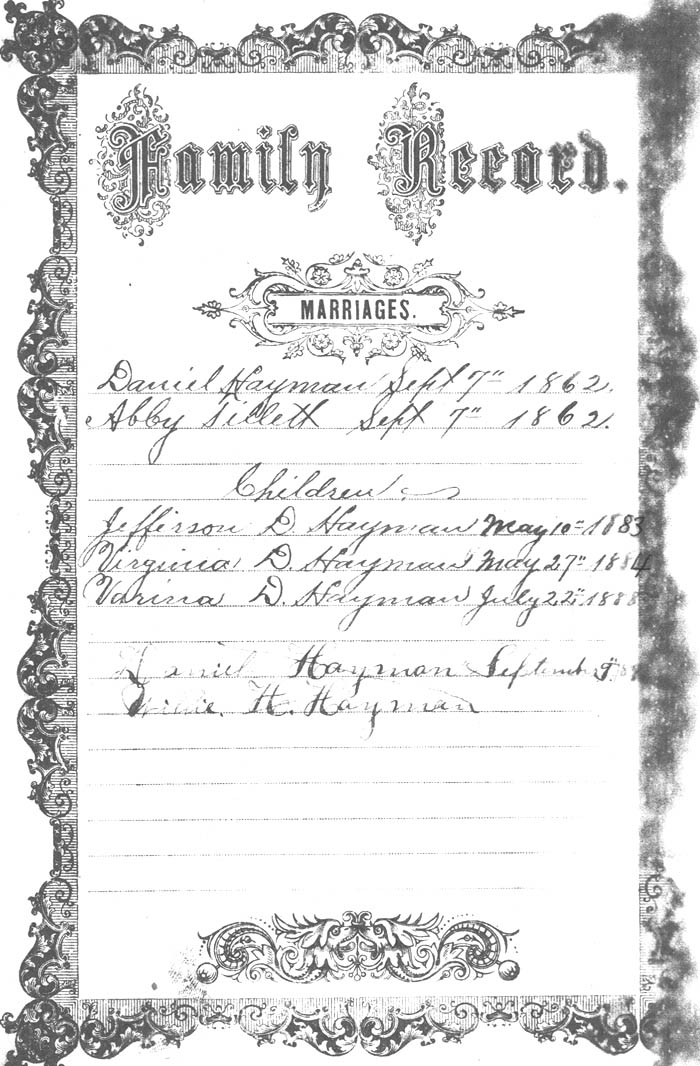 Family Record.
MARRIAGES.
Daniel Hayman Sept 7" 1862.
Abby Tillett Sept 7" 1862.
Children
Jefferson D. Hayman May 10" 1883
Virginia D. Hayman May 27" 1884
Varina D. Hayman July 22" 1888
Daniel Hayman September
Willie. H. Hayman